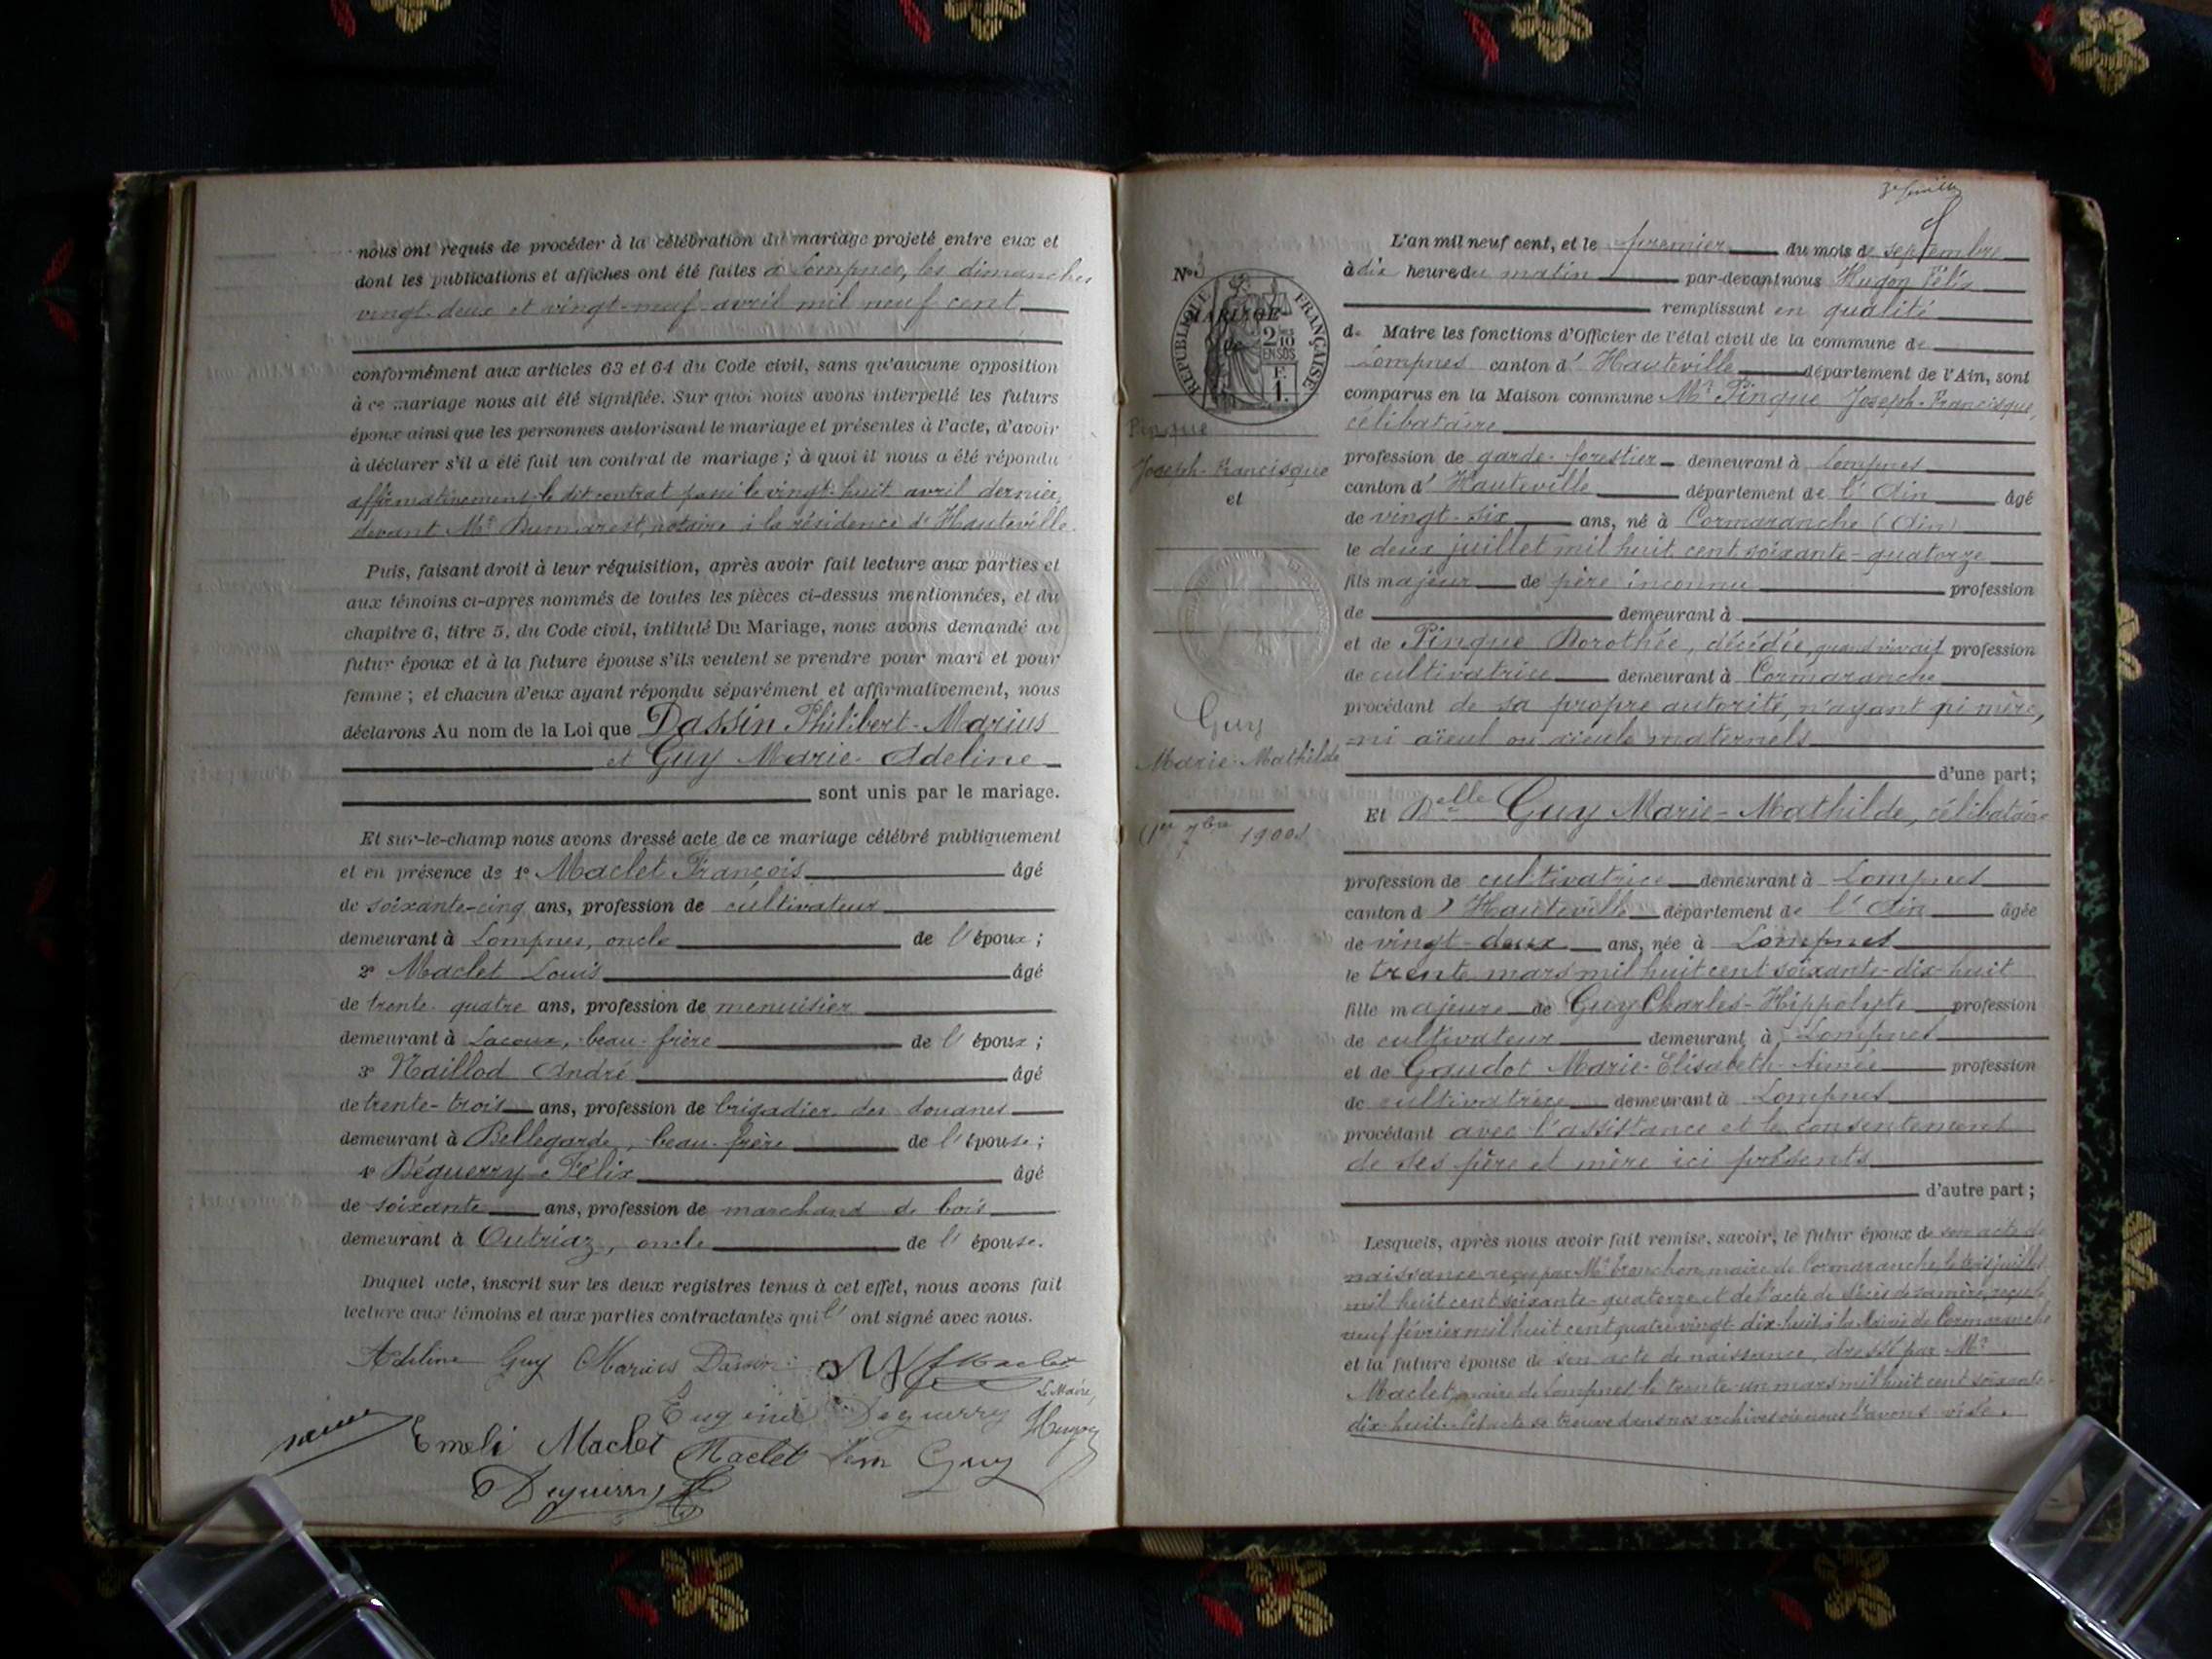 nous ont requis de procéder à la célébration du mariage projeté entre eux et
dont les publications et affiches ont été faites à Lompnes, les dimanches
vingt-deux et vingt-neuf avril mil neuf cent
conformément aux articles 63 et 64 du Code civil, sans qu'aucune opposition
à ce mariage nous ait été signifiée. Sur quoi nous avons interpellé les futurs
époux ainsi que les personnes autorisant le mariage et présentes à l'acte, d'avoir
à déclarer s'il a été fait un contrat de mariage ; à quoi il nous a été répondu
affirmativement, le dit contrat passé le vingt-huit avril dernier,
devant Me Dumarest, notaire à la résidence d'Hauteville.
Puis, faisant droit à leur réquisition, après avoir fait lecture aux parties et
aux témoins ci-après nommés de toutes les pièces ci-dessus mentionnées, et du
chapitre 6, titre 5, du Code civil, intitulé Du Mariage, nous avons demandé au
futur époux et à la future épouse s'ils veulent se prendre pour mari et pour
femme ; et chacun d'eux ayant répondu séparément et affirmativement, nous
déclarons Au nom de la Loi que Dassin Philibert-Marius
et Guy Marie-Adeline
sont unis par le mariage.
Et sur-le-champ nous avons dressé acte de ce mariage célébré publiquement
et en présence de 1° Maclet François âgé
de soixante-cinq ans, profession de cultivateur
demeurant à Lompnes, oncle de l'époux ;
2° Maclet Louis âgé
de trente-quatre ans, profession de menuisier
demeurant à Lacoux, beau-frère de l'époux ;
3° Naillod André âgé
de trente-trois ans, profession de brigadier des douanes
demeurant à Bellegarde, beau-frère de l'épouse ;
4° Déguerry Félix âgé
de soixante ans, profession de marchand de bois
demeurant à Outriaz, oncle de l'épouse.
Duquel acte, inscrit sur les deux registres tenus à cet effet, nous avons fait
lecture aux témoins et aux parties contractantes qui l'ont signé avec nous.
Adeline Guy Marius Dassin Maclet
Le Maire,
Eugénie Deguerry Hugon
Emeli Maclet Maclet Guy
Deguerry
N° 3
MARIAGE
de
RÉPUBLIQUE FRANÇAISE
2/10 EN SUS
F. 1.
Pinque
Joseph-Francisque
et
Guy
Marie-Mathilde
(1er 7bre 1900)
L'an mil neuf cent, et le premier du mois de septembre
à dix heure du matin par-devant nous Hugon Félix
remplissant en qualité
de Maire les fonctions d'Officier de l'état civil de la commune de
Lompnes canton d'Hauteville département de l'Ain, sont
comparus en la Maison commune Mr Pinque Joseph-Francisque,
célibataire
profession de garde-forestier demeurant à Lompnes
canton d'Hauteville département de l'Ain âgé
de vingt-six ans, né à Cormaranche (Ain)
le deux juillet mil huit cent soixante-quatorze
fils majeur de père inconnu profession
de demeurant à
et de Pinque Dorothée, décédée, quand vivait profession
de cultivatrice demeurant à Cormaranche
procédant de sa propre autorité, n'ayant ni mère,
ni aïeul ou aïeule maternels
d'une part ;
Et Delle Guy Marie-Mathilde, célibataire
profession de cultivatrice demeurant à Lompnes
canton d'Hauteville département de l'Ain âgée
de vingt-deux ans, née à Lompnes
le trente mars mil huit cent soixante-dix-huit
fille majeure de Guy Charles-Hippolyte profession
de cultivateur demeurant à Lompnes
et de Gaudot Marie-Elisabeth-Aimée profession
de cultivatrice demeurant à Lompnes
procédant avec l'assistance et le consentement
de ses père et mère ici présents
d'autre part ;
Lesquels, après nous avoir fait remise, savoir, le futur époux de son acte de
naissance reçu par Mr Tronchon, maire de Cormaranche, le trois juillet
mil huit cent soixante-quatorze et de l'acte de décès de sa mère, reçu le
neuf février mil huit cent quatre-vingt-dix-huit, à la Mairie de Cormaranche
et la future épouse de son acte de naissance, dressé par Mr
Maclet, maire de Lompnes le trente-un mars mil huit cent soixante-
dix-huit. Cet acte se trouve dans nos archives où nous l'avons visé.